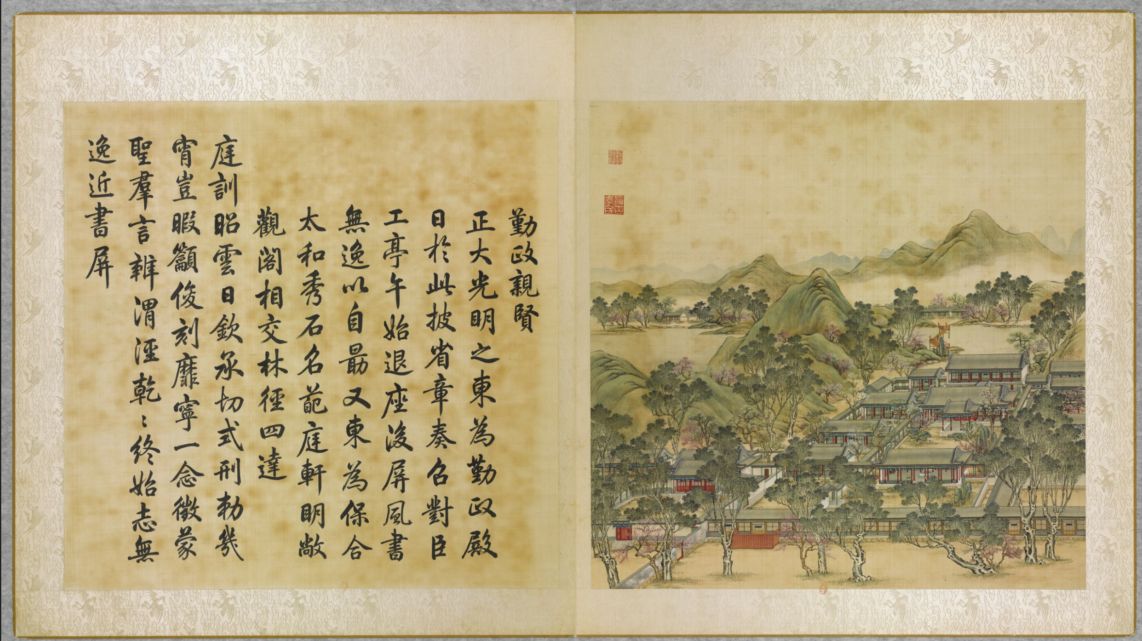 勤政親賢
正大光明之東為勤政殿
日於此披省章奏召對臣
工亭午始退座後屏風書
無逸以自朂又東為保合
太和秀石名葩庭軒明敞
觀閣相交林徑四達
庭訓昭雲日欽承切式刑勅幾
宵豈暇籲俊刻靡寧一念徵蒙
聖羣言辨渭涇乾〻終始志無
逸近書屏